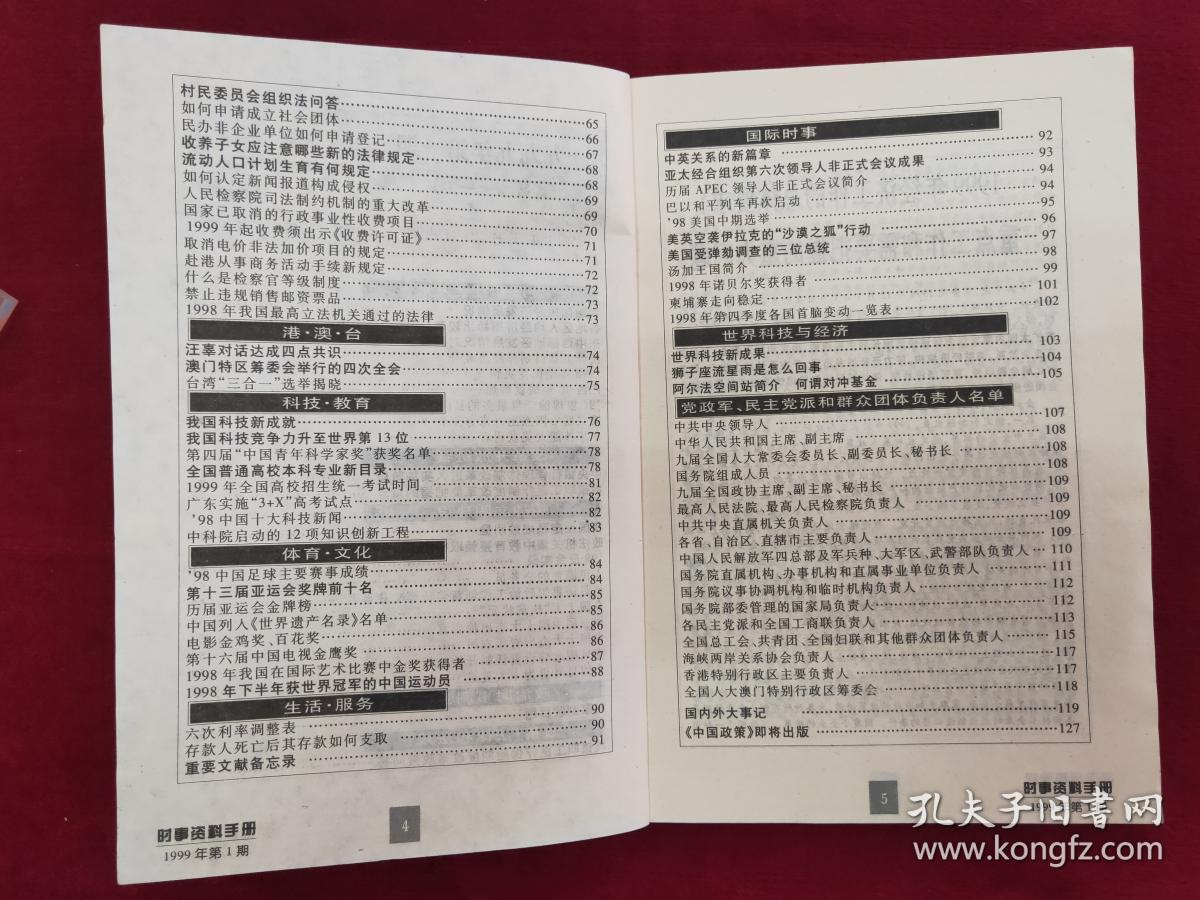 村民委员会组织法问答……65
如何申请成立社会团体……66
民办非企业单位如何申请登记……67
收养子女应注意哪些新的法律规定……68
流动人口计划生育有何规定……68
如何认定新闻报道构成侵权……69
人民检察院司法制约机制的重大改革……69
国家已取消的行政事业性收费项目……70
1999年起收费须出示《收费许可证》……71
取消电价非法加价项目的规定……71
赴港从事商务活动手续新规定……72
什么是检察官等级制度……72
禁止违规销售邮资票品……73
1998年我国最高立法机关通过的法律……73
港·澳·台
汪辜对话达成四点共识……74
澳门特区筹委会举行的四次全会……74
台湾“三合一”选举揭晓……75
科技·教育
我国科技新成就……76
我国科技竞争力升至世界第13位……77
第四届“中国青年科学家奖”获奖名单……78
全国普通高校本科专业新目录……78
1999年全国高校招生统一考试时间……81
广东实施“3+X”高考试点……82
’98中国十大科技新闻……82
中科院启动的12项知识创新工程……83
体育·文化
’98中国足球主要赛事成绩……84
第十三届亚运会奖牌前十名……84
历届亚运会金牌榜……85
中国列入《世界遗产名录》名单……85
电影金鸡奖、百花奖……86
第十六届中国电视金鹰奖……86
1998年我国在国际艺术比赛中金奖获得者……87
1998年下半年获世界冠军的中国运动员……88
生活·服务
六次利率调整表……90
存款人死亡后其存款如何支取……90
重要文献备忘录……91
时事资料手册
1999年第1期
4
国际时事
中英关系的新篇章……92
亚太经合组织第六次领导人非正式会议成果……93
历届APEC领导人非正式会议简介……94
巴以和平列车再次启动……94
’98美国中期选举……95
美英空袭伊拉克的“沙漠之狐”行动……96
美国受弹劾调查的三位总统……97
汤加王国简介……98
1998年诺贝尔奖获得者……99
柬埔寨走向稳定……101
1998年第四季度各国首脑变动一览表……102
世界科技与经济
世界科技新成果……103
狮子座流星雨是怎么回事……104
阿尔法空间站简介 何谓对冲基金……105
党政军、民主党派和群众团体负责人名单
中共中央领导人……107
中华人民共和国主席、副主席……108
九届全国人大常委会委员长、副委员长、秘书长……108
国务院组成人员……108
九届全国政协主席、副主席、秘书长……109
最高人民法院、最高人民检察院负责人……109
中共中央直属机关负责人……109
各省、自治区、直辖市主要负责人……109
中国人民解放军四总部及军兵种、大军区、武警部队负责人…110
国务院直属机构、办事机构和直属事业单位负责人……111
国务院议事协调机构和临时机构负责人……112
国务院部委管理的国家局负责人……112
各民主党派和全国工商联负责人……113
全国总工会、共青团、全国妇联和其他群众团体负责人……115
海峡两岸关系协会负责人……117
香港特别行政区主要负责人……117
全国人大澳门特别行政区筹委会……118
国内外大事记……119
《中国政策》即将出版……127
5
时事资料手册
孔夫子旧书网
www.kongfz.com